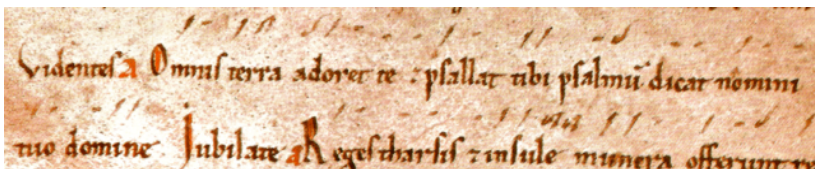 Videntes a Omnis terra adoret te ⁊ psallat tibi psalmū dicat nomini
tuo domine Iubilate a Reges tharsis ⁊ insule munera offerunt re